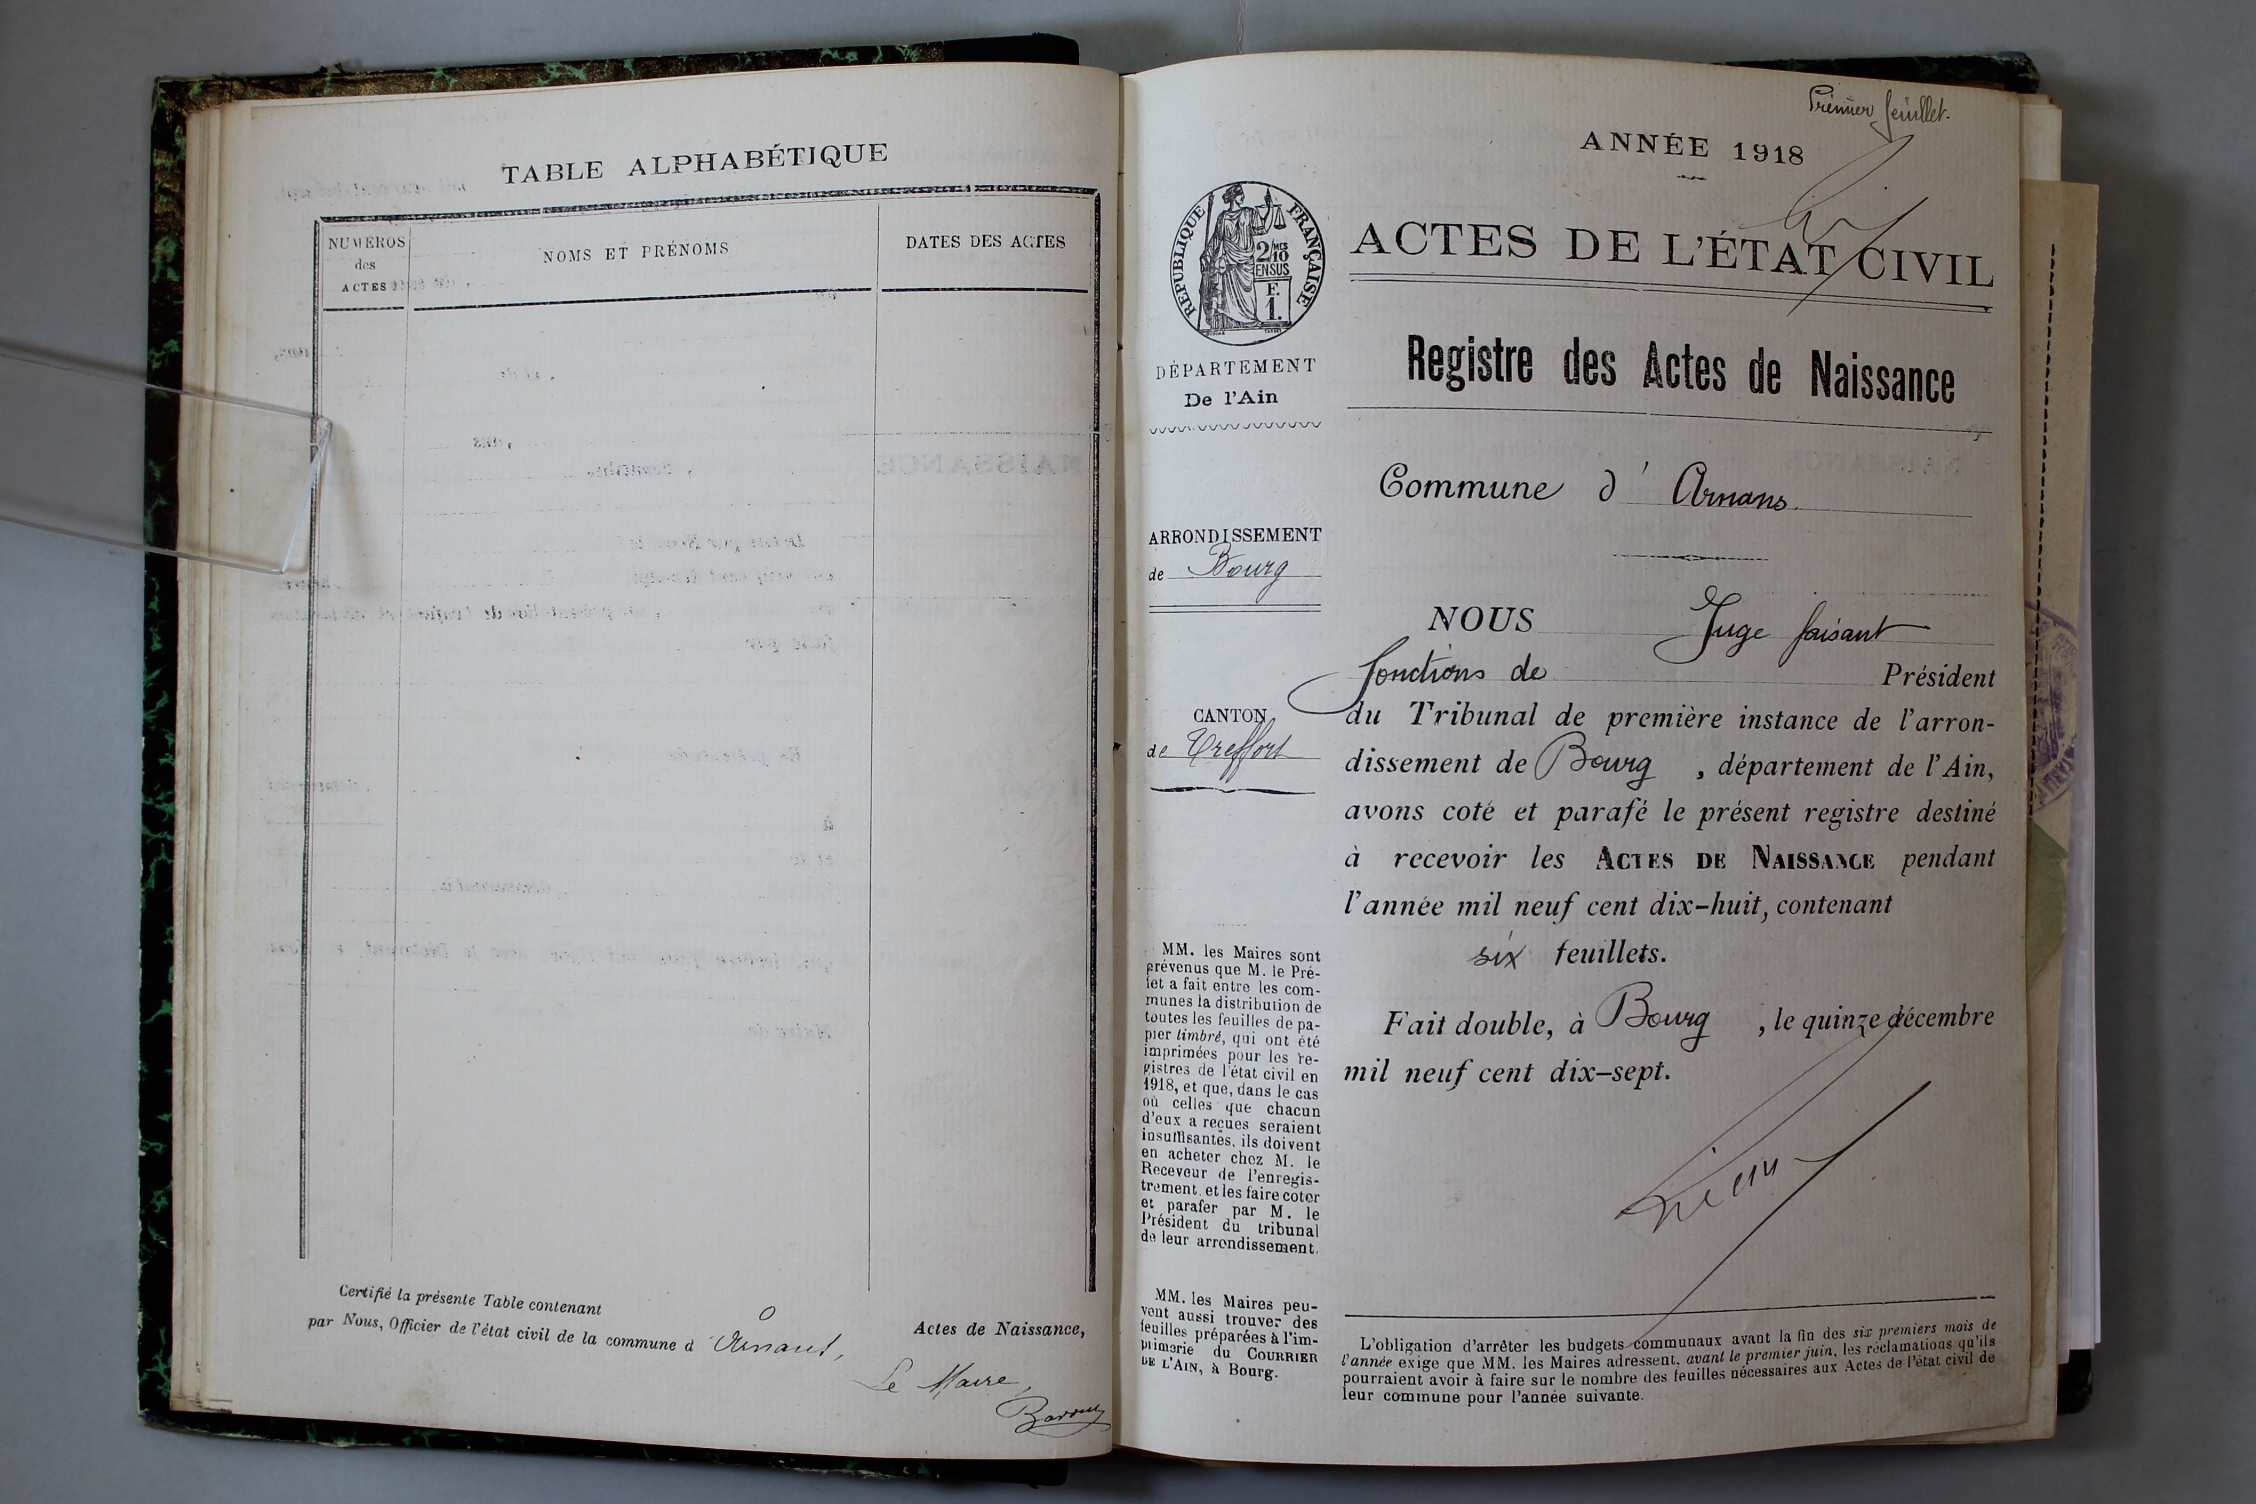 TABLE ALPHABÉTIQUE
NUMÉROS
des
ACTES
NOMS ET PRÉNOMS
DATES DES ACTES
Certifié la présente Table contenant 0 Actes de Naissance,
par Nous, Officier de l'état civil de la commune d Arnans,
Le Maire,
Premier feuillet.
ANNÉE 1918
ACTES DE L'ÉTAT CIVIL
RÉPUBLIQUE FRANÇAISE
2/10
MES
EN SUS
F.
1.
DÉPARTEMENT
De l'Ain
ARRONDISSEMENT
de Bourg
CANTON
de Treffort
MM. les Maires sont
prévenus que M. le Pré-
fet a fait entre les com-
munes la distribution de
toutes les feuilles de pa-
pier timbré, qui ont été
imprimées pour les re-
gistres de l'état civil en
1918, et que, dans le cas
où celles que chacun
d'eux a reçues seraient
insuffisantes, ils doivent
en acheter chez M. le
Receveur de l'enregis-
trement, et les faire coter
et parafer par M. le
Président du tribunal
de leur arrondissement.
MM. les Maires peu-
vent aussi trouver des
feuilles préparées à l'im-
primerie du COURRIER
DE L'AIN, à Bourg.
Registre des Actes de Naissance
Commune d' Arnans.
NOUS Juge faisant
fonctions de Président
du Tribunal de première instance de l'arron-
dissement de Bourg , département de l'Ain,
avons coté et parafé le présent registre destiné
à recevoir les ACTES DE NAISSANCE pendant
l'année mil neuf cent dix-huit, contenant
six feuillets.
Fait double, à Bourg , le quinze décembre
mil neuf cent dix-sept.
L'obligation d'arrêter les budgets communaux avant la fin des six premiers mois de
l'année exige que MM. les Maires adressent, avant le premier juin, les réclamations qu'ils
pourraient avoir à faire sur le nombre des feuilles nécessaires aux Actes de l'état civil de
leur commune pour l'année suivante.